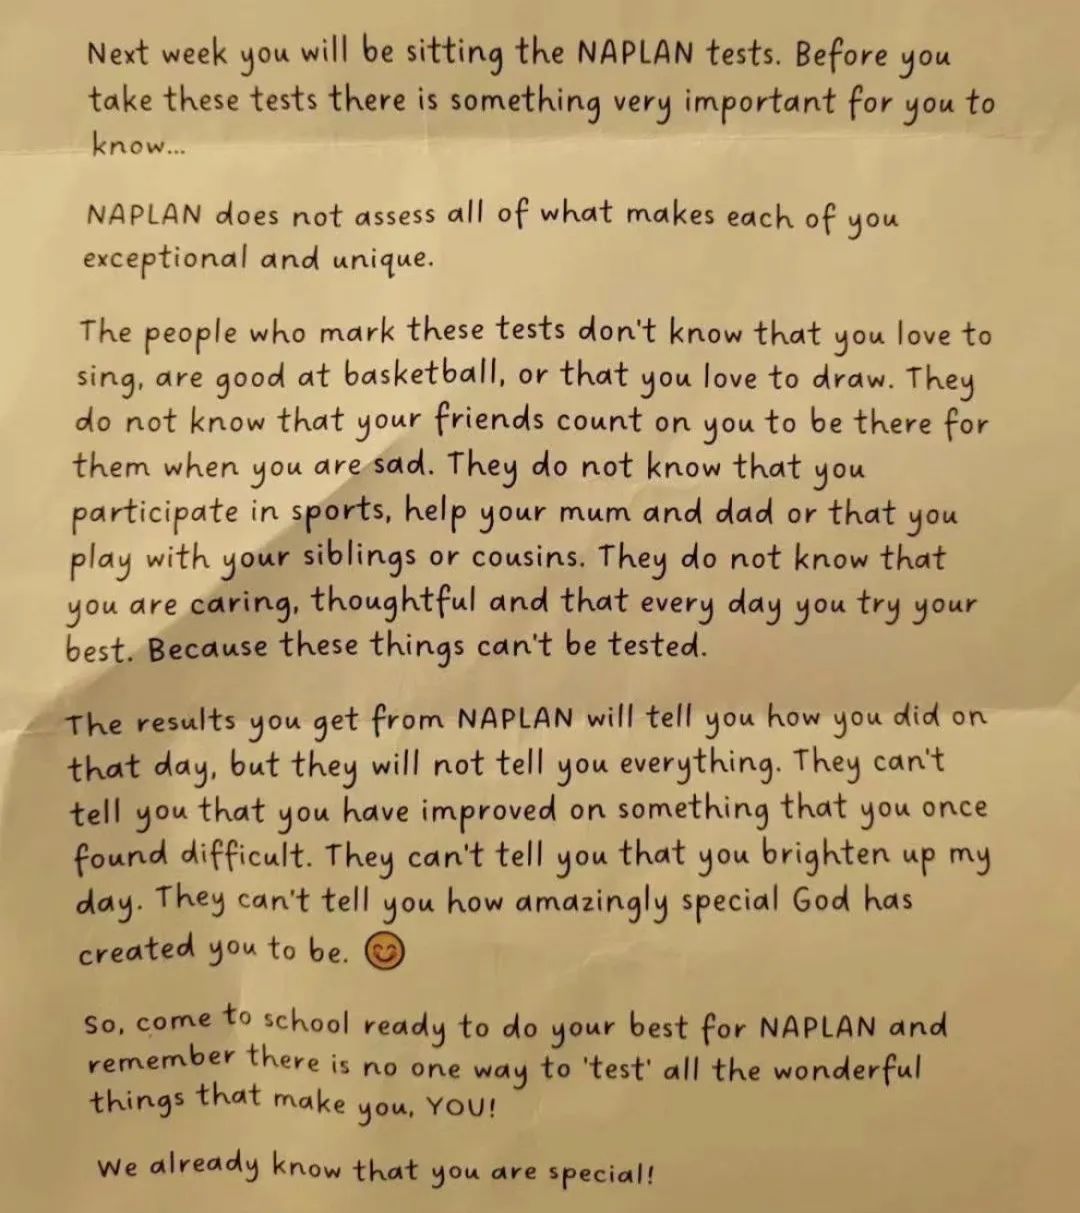 Next week you will be sitting the NAPLAN tests. Before you
take these tests there is something very important for you to
know...
NAPLAN does not assess all of what makes each of you
exceptional and unique.
The people who mark these tests don't know that you love to
sing, are good at basketball, or that you love to draw. They
do not know that your friends count on you to be there for
them when you are sad. They do not know that you
participate in sports, help your mum and dad or that you
play with your siblings or cousins. They do not know that
you are caring, thoughtful and that every day you try your
best. Because these things can't be tested.
The results you get from NAPLAN will tell you how you did on
that day, but they will not tell you everything. They can't
tell you that you have improved on something that you once
found difficult. They can't tell you that you brighten up my
day. They can't tell you how amazingly special God has
created you to be. 😊
So, come to school ready to do your best for NAPLAN and
remember there is no one way to 'test' all the wonderful
things that make you, YOU!
We already know that you are special!